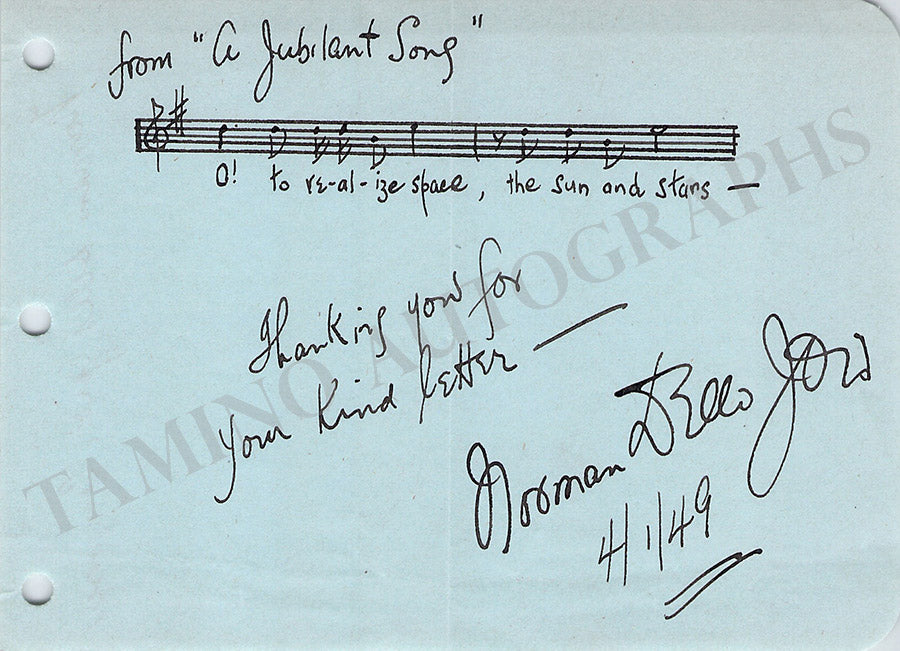 from "A Jubilant Song"
O! to re-al-ize space, the sun and stars —
Thanking you for
your kind letter —
Norman Dello Joio
4/1/49
TAMINO AUTOGRAPHS